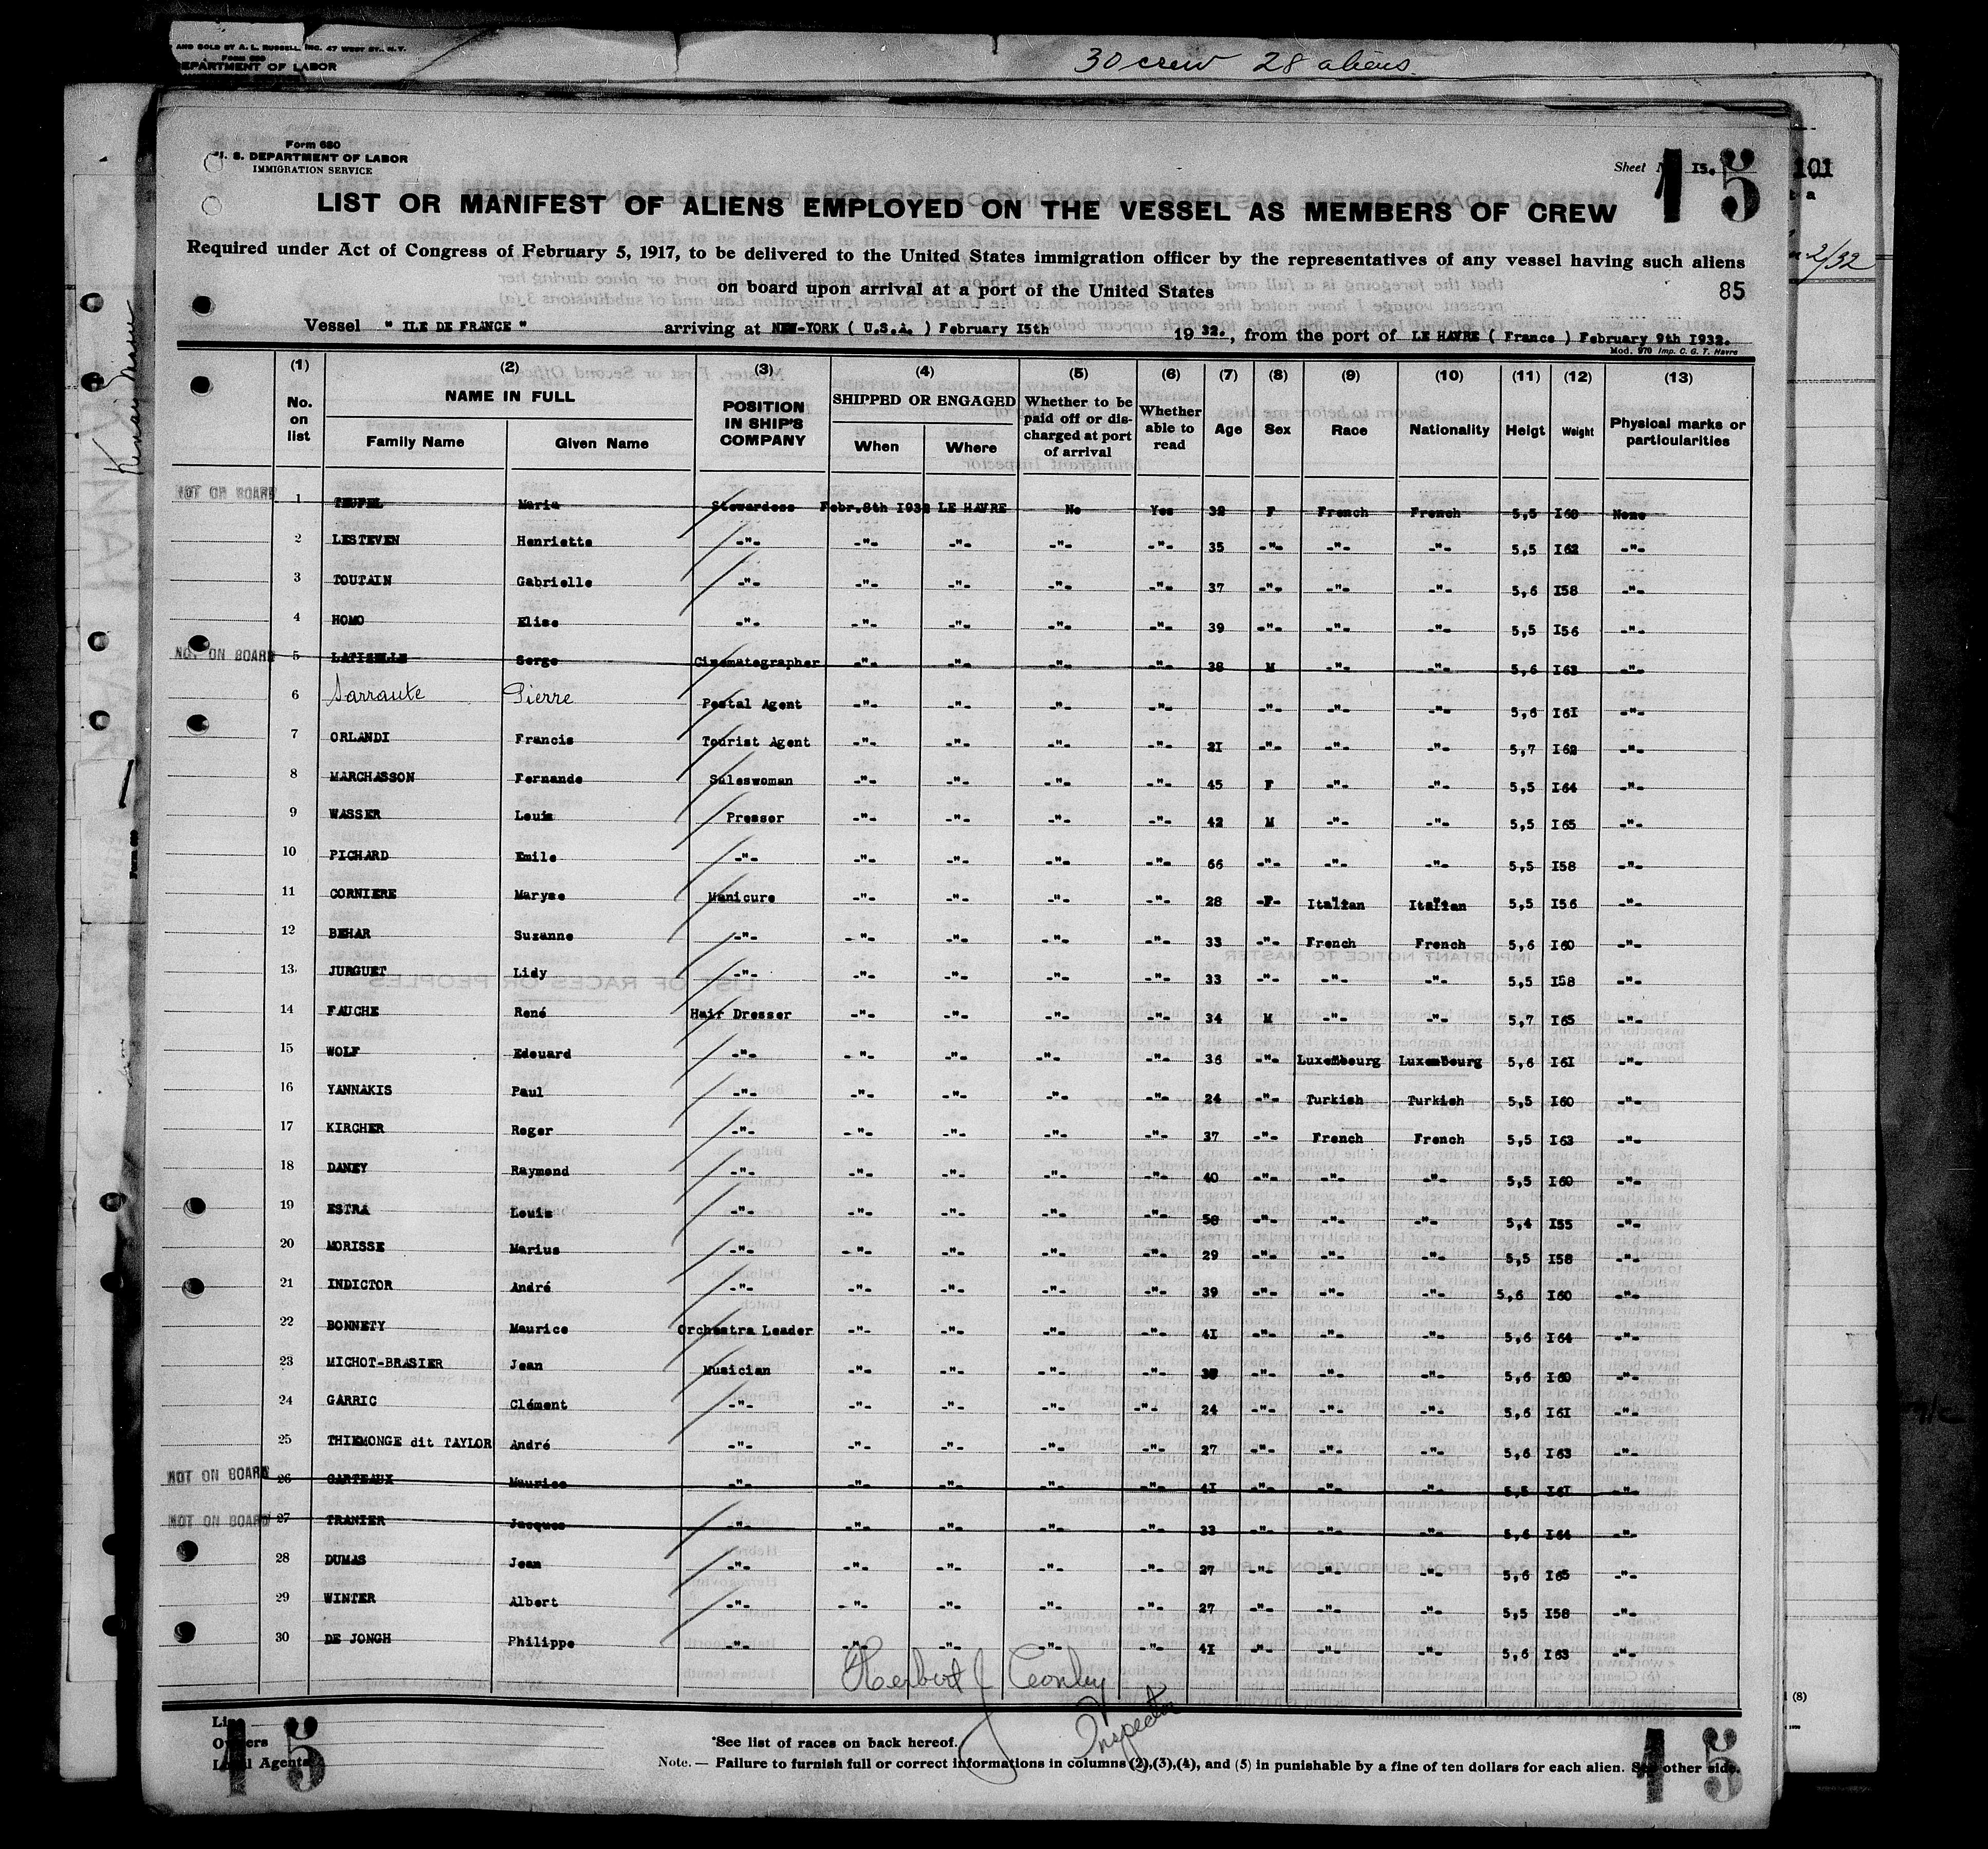 AND SOLD BY A. L. RUSSELL, INC. 47 WEST ST., N.Y.
Form 680
DEPARTMENT OF LABOR
30 crew 28 aliens
Form 680
U. S. DEPARTMENT OF LABOR
IMMIGRATION SERVICE
Sheet N 15. 15
101
LIST OR MANIFEST OF ALIENS EMPLOYED ON THE VESSEL AS MEMBERS OF CREW
Required under Act of Congress of February 5, 1917, to be delivered to the United States immigration officer by the representatives of any vessel having such aliens
on board upon arrival at a port of the United States
85
2/32
Vessel " ILE DE FRANCE " arriving at NEW-YORK ( U.S.A. ) February I5th 19 32. , from the port of LE HAVRE ( France ) February 9th I932.
Mod. 970 Imp. C. G. T. Havre
(1) (2) (3) (4) (5) (6) (7) (8) (9) (10) (11) (12) (13)
No. on list NAME IN FULL Family Name Given Name POSITION IN SHIP'S COMPANY SHIPPED OR ENGAGED When Where Whether to be paid off or discharged at port of arrival Whether able to read Age Sex Race Nationality Heigt Weight Physical marks or particularities
NOT ON BOARD 1 TEUFEL Maria Stewardess Febr.8th I932 LE HAVRE No Yes 32 F French French 5,5 I60 None
2 LESTEVEN Henriette -"- -"- -"- -"- -"- 35 -"- -"- -"- 5,5 I62 -"-
3 TOUTAIN Gabrielle -"- -"- -"- -"- -"- 37 -"- -"- -"- 5,6 I58 -"-
4 HOMO Elise -"- -"- -"- -"- -"- 39 -"- -"- -"- 5,5 I56 -"-
NOT ON BOARD 5 Serge Cinematographer -"- -"- -"- -"- 38 M -"- -"- 5,6 I63 -"-
6 Sarraute Pierre Postal Agent -"- -"- -"- -"- -"- -"- -"- 5,6 I6I -"-
7 ORLANDI Francis Tourist Agent -"- -"- -"- -"- 2I -"- -"- -"- 5,7 I62 -"-
8 MARCHASSON Fernande Saleswoman -"- -"- -"- -"- 45 F -"- -"- 5,5 I64 -"-
9 WASSER Louis Presser -"- -"- -"- -"- 42 M -"- -"- 5,5 I65 -"-
10 PICHARD Emile -"- -"- -"- -"- -"- 66 -"- -"- -"- 5,5 I58 -"-
11 CORNIERE Maryse Manicure -"- -"- -"- -"- 28 -F- Italian Italian 5,5 I56 -"-
12 BEHAR Suzanne -"- -"- -"- -"- -"- 33 -"- French French 5,6 I60 -"-
13 JURGUET Lidy -"- -"- -"- -"- -"- 33 -"- -"- -"- 5,5 I58 -"-
14 FAUCHE René Hair Dresser -"- -"- -"- -"- 34 M -"- -"- 5,7 I65 -"-
15 WOLF Edouard -"- -"- -"- -"- -"- 36 -"- Luxembourg Luxembourg 5,6 I6I -"-
16 YANNAKIS Paul -"- -"- -"- -"- -"- 24 -"- Turkish Turkish 5,5 I60 -"-
17 KIRCHER Roger -"- -"- -"- -"- -"- 37 -"- French French 5,5 I63 -"-
18 DANEY Raymond -"- -"- -"- -"- -"- 40 -"- -"- -"- 5,5 I60 -"-
19 ESTRA Louis -"- -"- -"- -"- -"- 58 -"- -"- -"- 5,4 I55 -"-
20 MORISSE Marius -"- -"- -"- -"- -"- 29 -"- -"- -"- 5,5 I58 -"-
21 INDICTOR André -"- -"- -"- -"- -"- 39 -"- -"- -"- 5,6 I60 -"-
22 BONNETY Maurice Orchestra Leader -"- -"- -"- -"- 4I -"- -"- -"- 5,6 I64 -"-
23 MICHOT-BRASIER Jean Musician -"- -"- -"- -"- -"- -"- -"- 5,6 I60 -"-
24 GARRIC Clément -"- -"- -"- -"- -"- 24 -"- -"- -"- 5,6 I6I -"-
25 THIEMONGE dit TAYLOR André -"- -"- -"- -"- -"- 27 -"- -"- -"- 5,6 I63 -"-
NOT ON BOARD 26 CARTEAUX Maurice -"- -"- -"- -"- -"- 4I -"- -"- -"- 5,5 I6I -"-
NOT ON BOARD 27 TRANIER Jacques -"- -"- -"- -"- -"- 33 -"- -"- -"- 5,6 I64 -"-
28 DUMAS Jean -"- -"- -"- -"- -"- 27 -"- -"- -"- 5,6 I65 -"-
29 WINTER Albert -"- -"- -"- -"- -"- 27 -"- -"- -"- 5,5 I58 -"-
30 DE JONGH Philippe -"- -"- -"- -"- -"- 4I -"- -"- -"- 5,6 I63 -"-
Herbert J Conley
Inspector
(8)
Line
Owners
Local Agents
15
*See list of races on back hereof.
Note. — Failure to furnish full or correct informations in columns (2),(3),(4), and (5) in punishable by a fine of ten dollars for each alien. See other side.
15